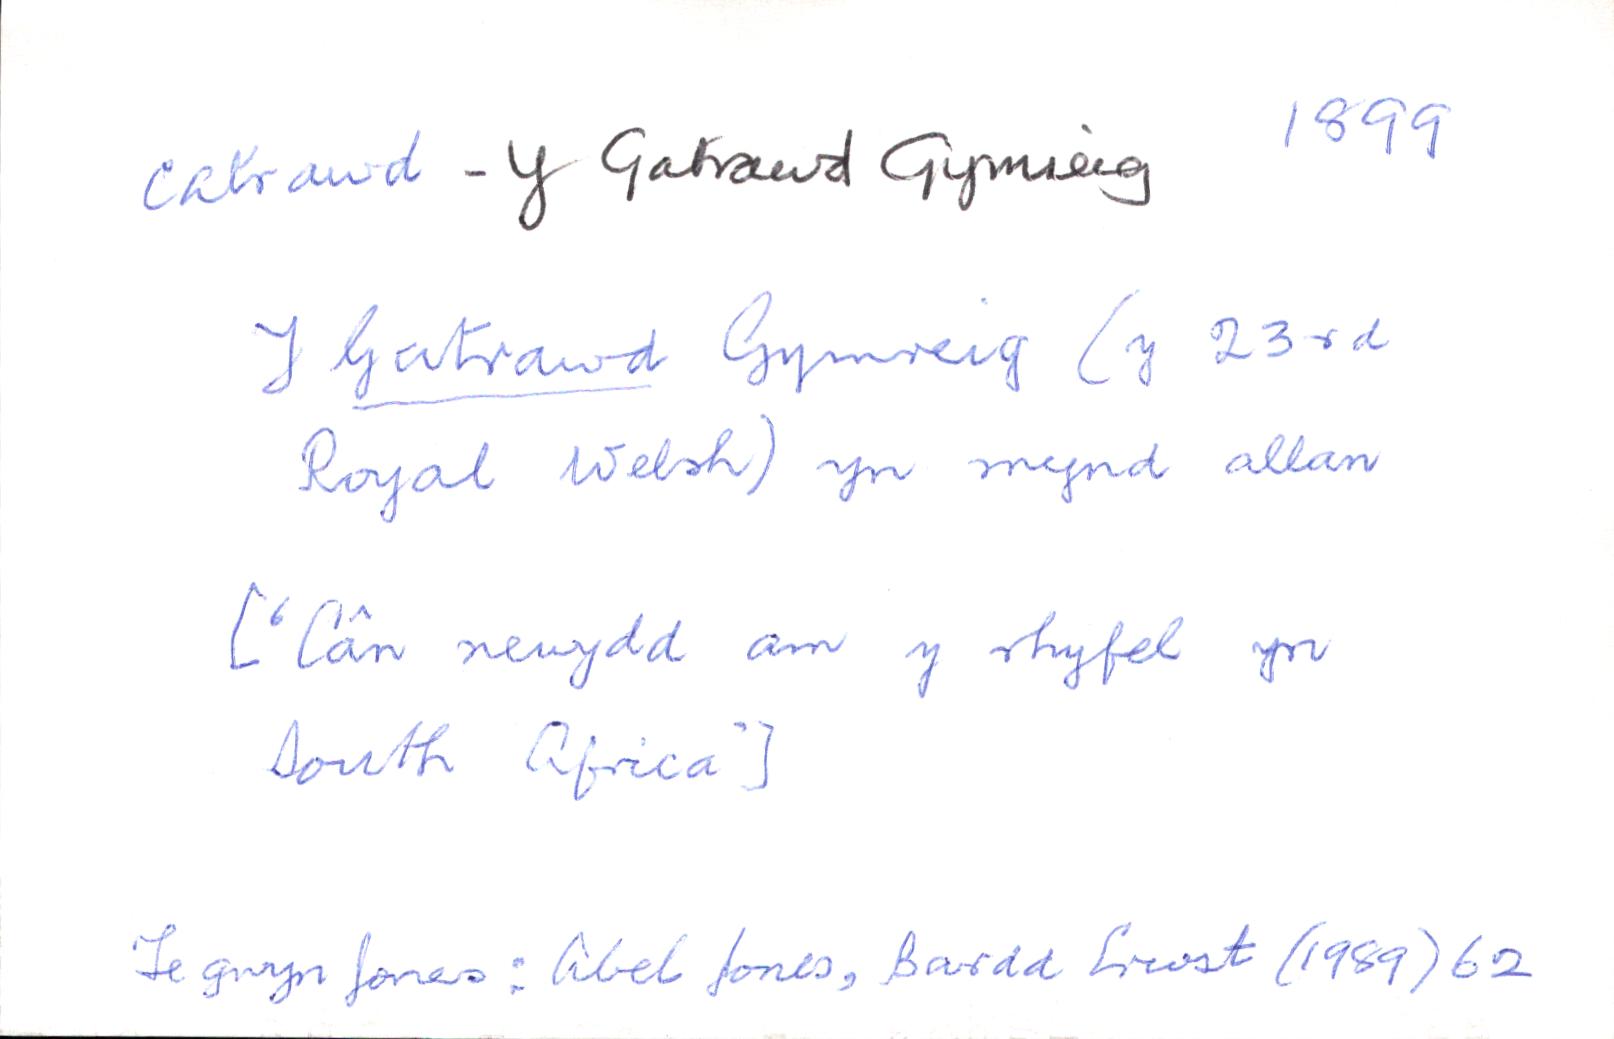 catrawd - Y Gatrawd Gymreig 1899
Y Gatrawd Gymreig (y 23rd
Royal Welsh) yn mynd allan
[‘Cân newydd am y rhyfel yn
South Africa’]
Tegwyn Jones: Abel Jones, Bardd Crwst (1989) 62